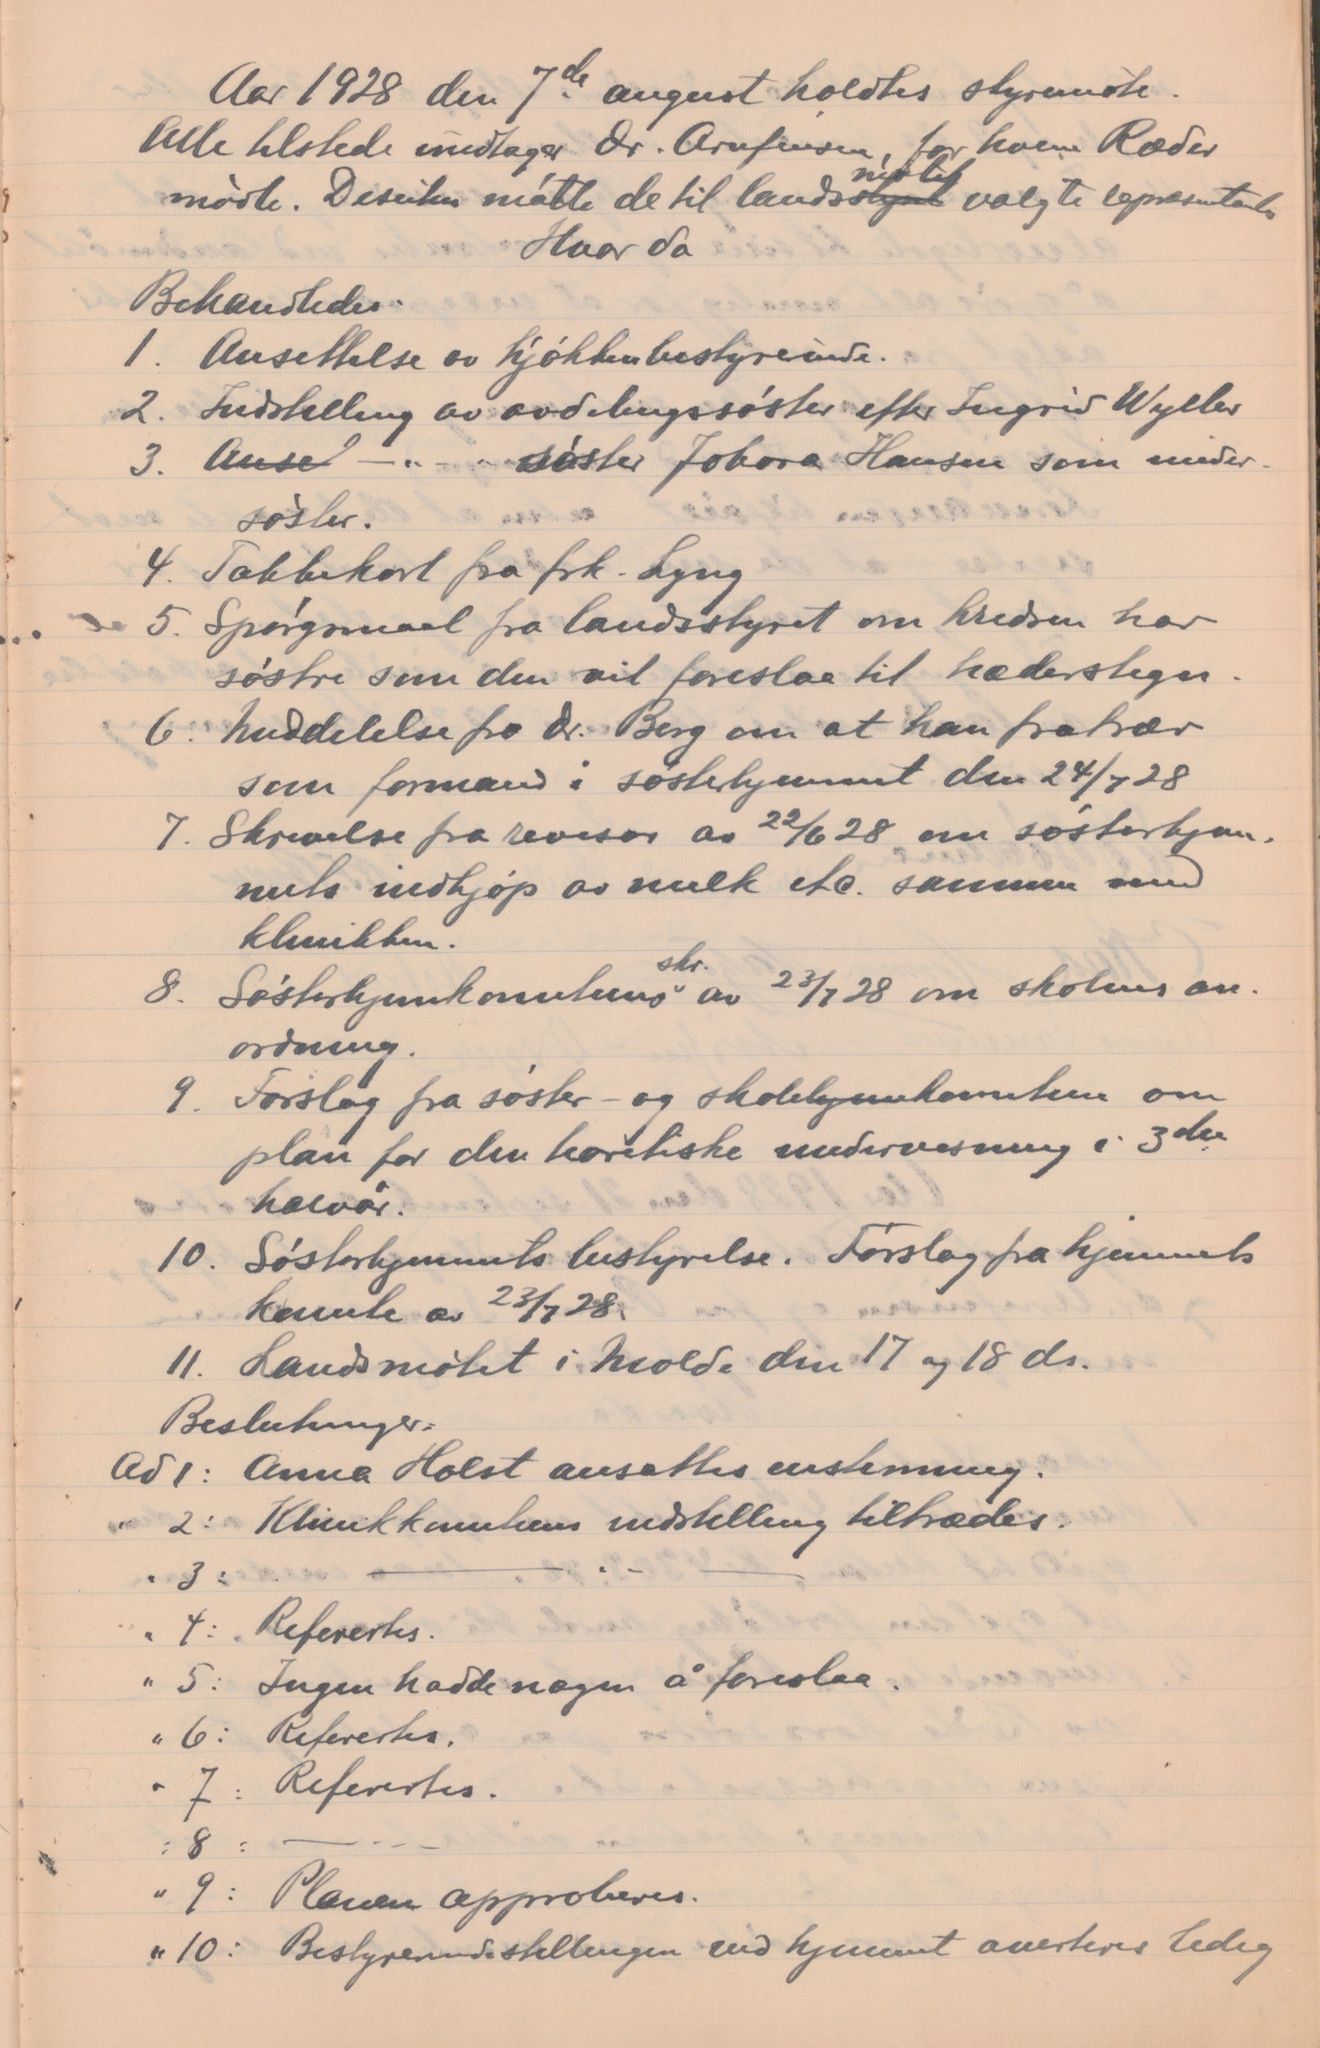 Aar 1928 den 7de august holdtes styremöte.
Alle tilstede undtager Dr. Arnfinsen, for hvem Ræder
mödte. Desuten måtte de til landsmötet valgte representanter
Hvor da
Behandledes
1. Ansettelse av kjökkenbestyrerinde.
2. Indstilling av avdelingssöster efter Ingrid Wyller
3. Anse -"- söster Johora Hansen som under-
söster.
4. Takkekort fra frk. Lyng
5. Spörgsmaal fra landsstyret om kredsen har
söstre som den vil foreslaa til hæderstegn.
6. Meddelelse fra Dr. Berg om at han fratrær
som formand i sösterhjemmet den 24/7 28
7. Skrivelse fra revisor av 22/6 28 om sösterhjem-
mets indkjöp av melk etc. sammen med
klinikken.
8. Sösterhjemkomiteens skr. av 23/7 28 om skolens an-
ordning.
9. Forslag fra söster- og skolehjemkomiteen om
plan for den teoretiske undervisning i 3die
halvår.
10. Sösterhjemmets bestyrelse. Forslag fra hjemmets
komite av 23/7 28.
11. Landsmötet i Molde den 17 og 18 ds.
Beslutninger:
Ad 1: Anna Holst ansattes enstemmig.
" 2: Klinikkomiteens indstilling tiltrædes.
" 3: — " —
" 4: Refereres.
" 5: Ingen hadde nogen å foreslaa.
" 6: Refereres.
" 7: Refereres.
" 8: — " —
" 9: Planen approberes.
" 10: Bestyrerindestillingen ved hjemmet averteres ledig